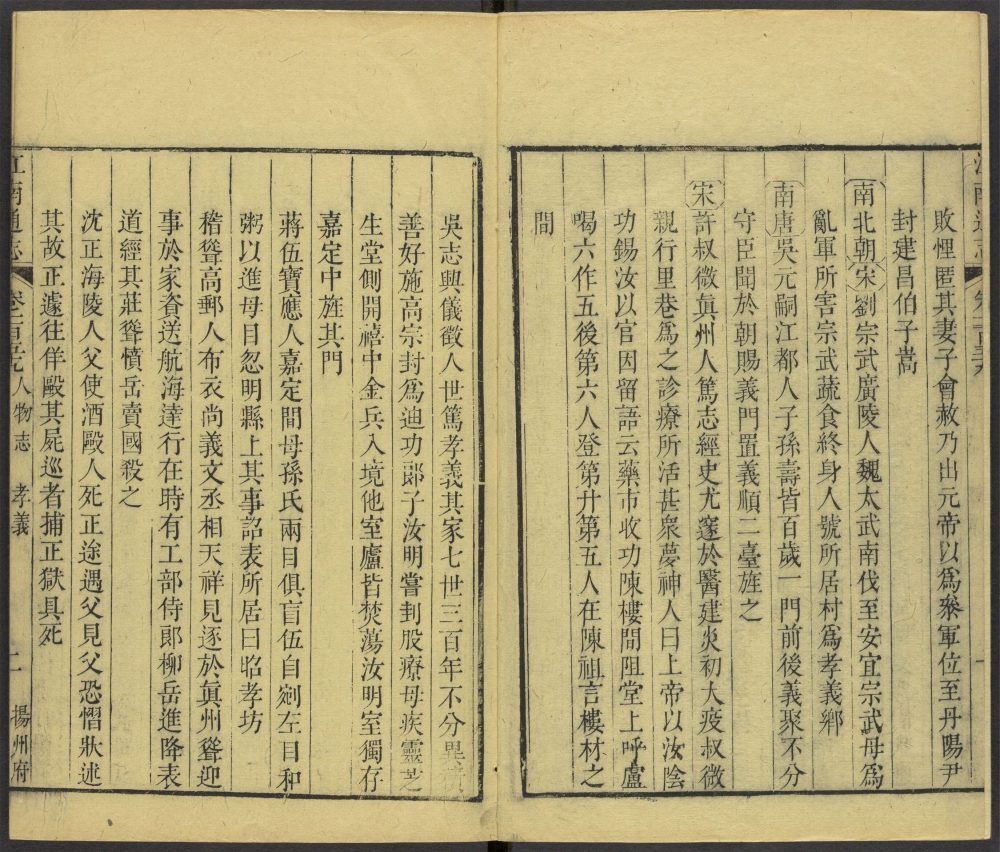 敗悝匿其妻子會赦乃出元帝以爲叅軍位至丹陽尹
封建昌伯子嵩
南北朝宋劉宗武廣陵人魏太武南伐至安宜宗武母爲
亂軍所害宗武蔬食終身人號所居村爲孝義鄕
南唐吳元嗣江都人子孫壽皆百歲一門前後義聚不分
守臣聞於朝賜義門置義順二臺旌之
宋許叔微眞州人篤志經史尤邃於醫建炎初大疫叔微
親行里巷爲之診療所活甚衆夢神人曰上帝以汝陰
功錫汝以官因留語云藥市收功陳樓間阻堂上呼盧
喝六作五後第六人登第升第五人在陳祖言樓材之
間
吳志興儀徵人世篤孝義其家七世三百年不分異
善好施高宗封爲迪功郞子汝明嘗刲股療母疾靈芝
生堂側開禧中金兵入境他室廬皆焚蕩汝明室獨存
嘉定中旌其門
蔣伍寶應人嘉定間母孫氏兩目俱盲伍自剜左目和
粥以進母目忽明縣上其事詔表所居曰昭孝坊
稽聳高郵人布衣尚義文丞相天祥見逐於眞州聳迎
事於家資送航海達行在時有工部侍郞柳岳進降表
道經其莊聳憤岳賣國殺之
沈正海陵人父使酒毆人死正途遇父見父恐慴狀述
其故正遽往佯毆其屍巡者捕正獄具死
江南通志 人物志 孝義 二 揚州府